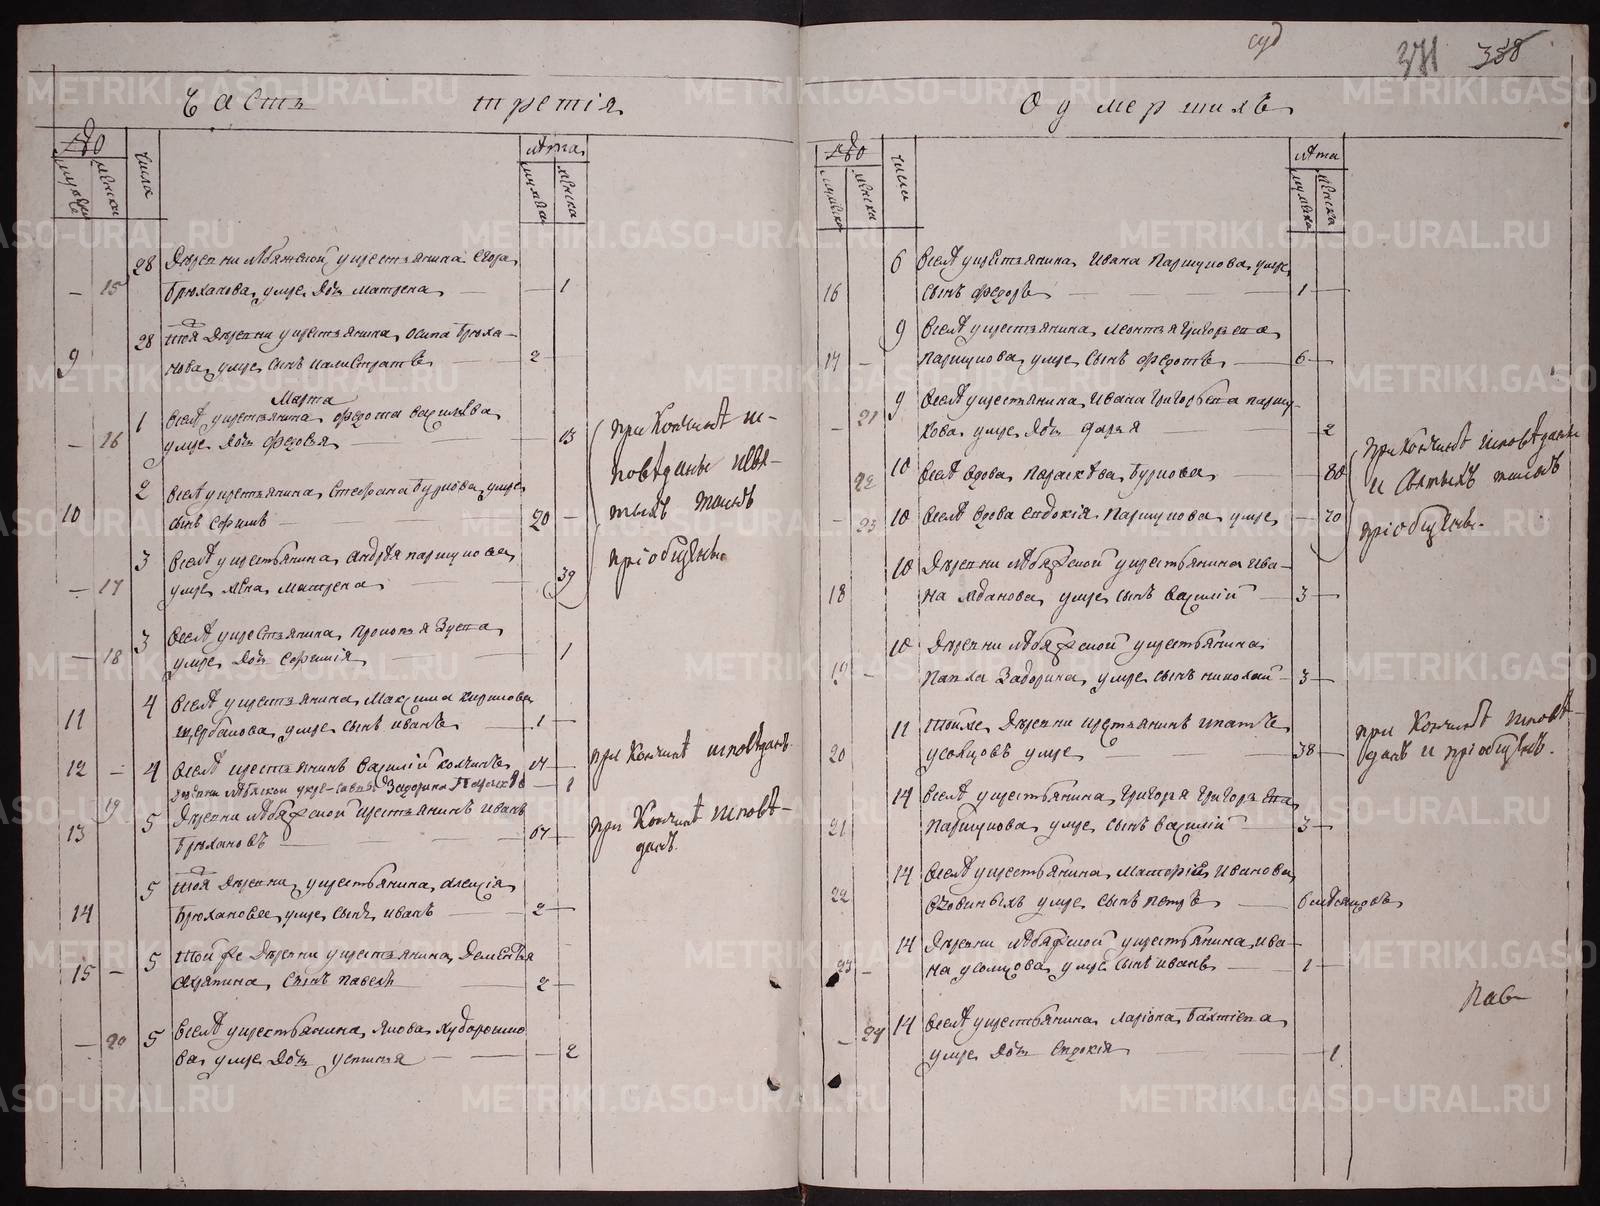 суд
371 338
Часть третія
Что
мужеска
женска
числа
лѣта
мужеска
женска
28 Деревни Лебяжской у крестьянина Егора
— 15 Брюханова умре дочь Матрена — 1
28 тоя деревни у крестьянина Осипа Брюха-
9 нова умре сынъ Калистратъ — 2 —
Марта
1 села у крестьянина Федота
— 16 умре дочь 13
2 села у крестьянина Стефана Буркова умре
10 сынъ Ефимъ — 20 —
3 села у крестьянина Андрея Паршукова
— 17 умре жена Матрена 39
при кончинѣ ис-
повѣданы и свя-
тыхъ таинъ
пріобщены
3 села у крестьянина Прокопья Зуева
— 18 умре дочь Ефимія — 1
4 села у крестьянина Максима Кирилова
11 Щербакова умре сынъ Иванъ — 1 —
12 — 4 села крестьянинъ Василій
при кончинѣ исповѣданъ
19 — 1
5 Деревни Лебяжской крестьянинъ Иванъ
13 Брюхановъ — 67 —
при кончинѣ исповѣ-
данъ
5 тоя деревни у крестьянина Алексія
14 Брюханова умре сынъ Иванъ — 2 —
5 той же деревни у крестьянина Дементья
15 — сынъ Павелъ — 2 —
5 села у крестьянина Якова Худорошко
— 20 ва умре дочь Устинья — 2
О умершихъ
Что
мужеска
женска
числа
лѣта
мужеска
женска
6 села у крестьянина Ивана Паршукова умре
16 сынъ Федоръ — 1 —
9 села у крестьянина Леонтья Григорьева
17 — Паршукова умре сынъ Федотъ — 6 —
9 села у крестьянина Ивана Григорьева Паршу-
— 21 кова умре дочь Дарья — 2
22 10 села вдова Параскева Буркова — 80
— 23 10 села вдова Евдокія Паршукова умре — 70
при кончинѣ исповѣданы
и святыхъ таинъ
пріобщены.
10 Деревни Лебяжской у крестьянина Ива-
18 на Жданова умре сынъ Василій — 3 —
10 Деревни Лебяжской у крестьянина
19 — Павла Задорина умре сынъ Николай — 3 —
11 той же деревни крестьянинъ Ипатъ
20 Усольцовъ умре — 38 —
при кончинѣ исповѣ-
данъ и пріобщенъ.
14 села у крестьянина Григорья Григорьева
21 Паршукова умре сынъ Василій — 3 —
14 села у крестьянина Иванова
22 умре сынъ Петръ — 6 мѣсяцовъ
14 Деревни Лебяжской у крестьянина Ива-
23 — на Усольцова умре сынъ Иванъ — 1 —
14 села у крестьянина Ларіона Бахтіева
— 24 умре дочь Евдокія — 1
Пав-
METRIKI.GASO-URAL.RU